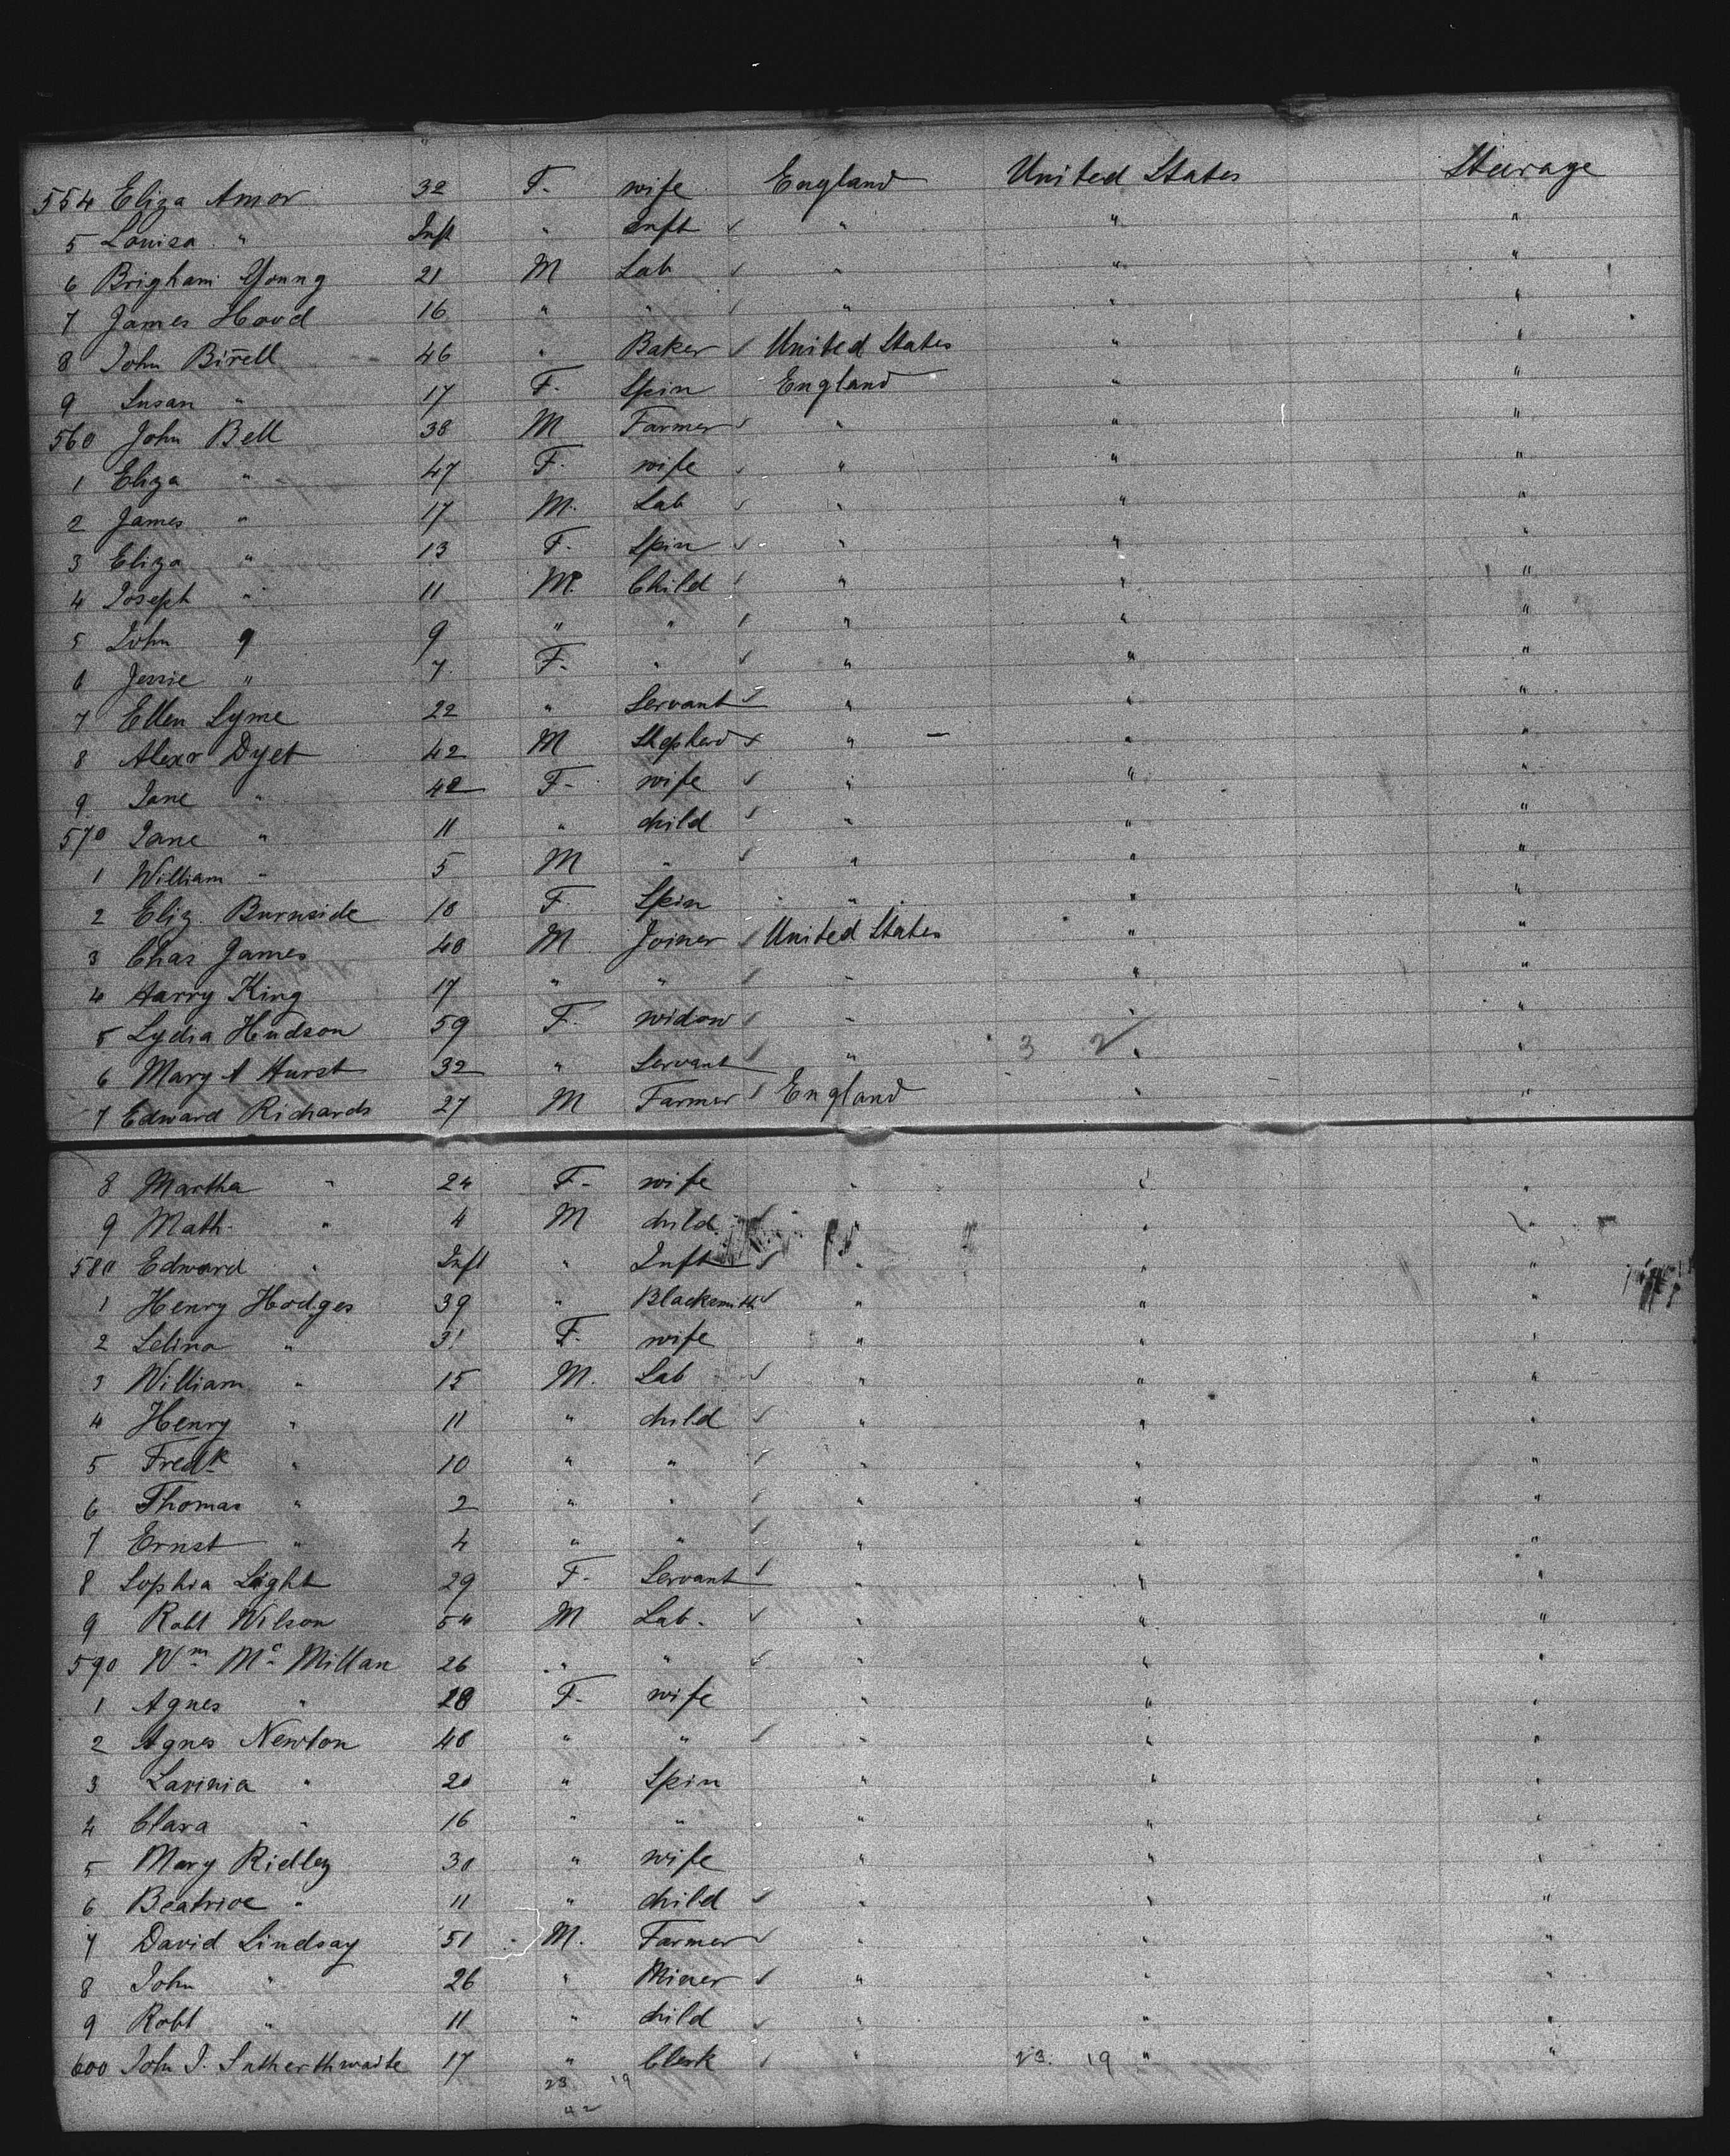 554 Eliza Amor 32 F. wife England United States Steerage
5 Louisa " Inft " Inft " " "
6 Brigham Young 21 M Lab " " "
7 James Hood 16 " " " " "
8 John Birrell 46 " Baker United States " "
9 Susan " 17 F. Spin England " "
560 John Bell 38 M Farmer " " "
1 Eliza " 47 F. wife " " "
2 James " 17 M. Lab " " "
3 Eliza " 13 F. Spin " " "
4 Joseph " 11 M. Child " " "
5 John " 9 " " " " "
6 Jessie " 7 F. " " " "
7 Ellen Lyme 22 " Servant " " "
8 Alexr Dyet 42 M Shepherd " " "
9 Jane " 42 F. wife " " "
570 Jane " 11 " child " " "
1 William " 5 M " " " "
2 Eliz. Burnside 18 F Spin " " "
3 Chas James 40 M Joiner United States " "
4 Harry King 17 " " " " "
5 Lydia Hudson 59 F. widow " " "
6 Mary A Hurst 32 " Servant " 3 2 " "
7 Edward Richards 27 M Farmer England " "
8 Martha " 24 F. wife " " "
9 Math. " 4 M child " " "
580 Edward " Inft " Inft " " "
1 Henry Hodges 39 " Blacksmith " " "
2 Selina " 31 F. wife " " "
3 William " 15 M. Lab " " "
4 Henry " 11 " child " " "
5 Fredk " 10 " " " " "
6 Thomas " 2 " " " " "
7 Ernst " 4 " " " " "
8 Sophia Light 29 F. Servant " " "
9 Robt Wilson 54 M Lab. " " "
590 Wm Mc Millan 26 " " " " "
1 Agnes " 28 F. wife " " "
2 Agnes Newton 48 " " " " "
3 Lavinia " 20 " Spin " " "
4 Clara " 16 " " " " "
5 Mary Ridley 30 " wife " " "
6 Beatrice " 11 " child " " "
7 David Lindsay 51 M. Farmer " " "
8 John " 26 " Miner " " "
9 Robt " 11 " child " " "
600 John J. Sutherthwaite 17 " Clerk " 23. 19 " "
23 19
42